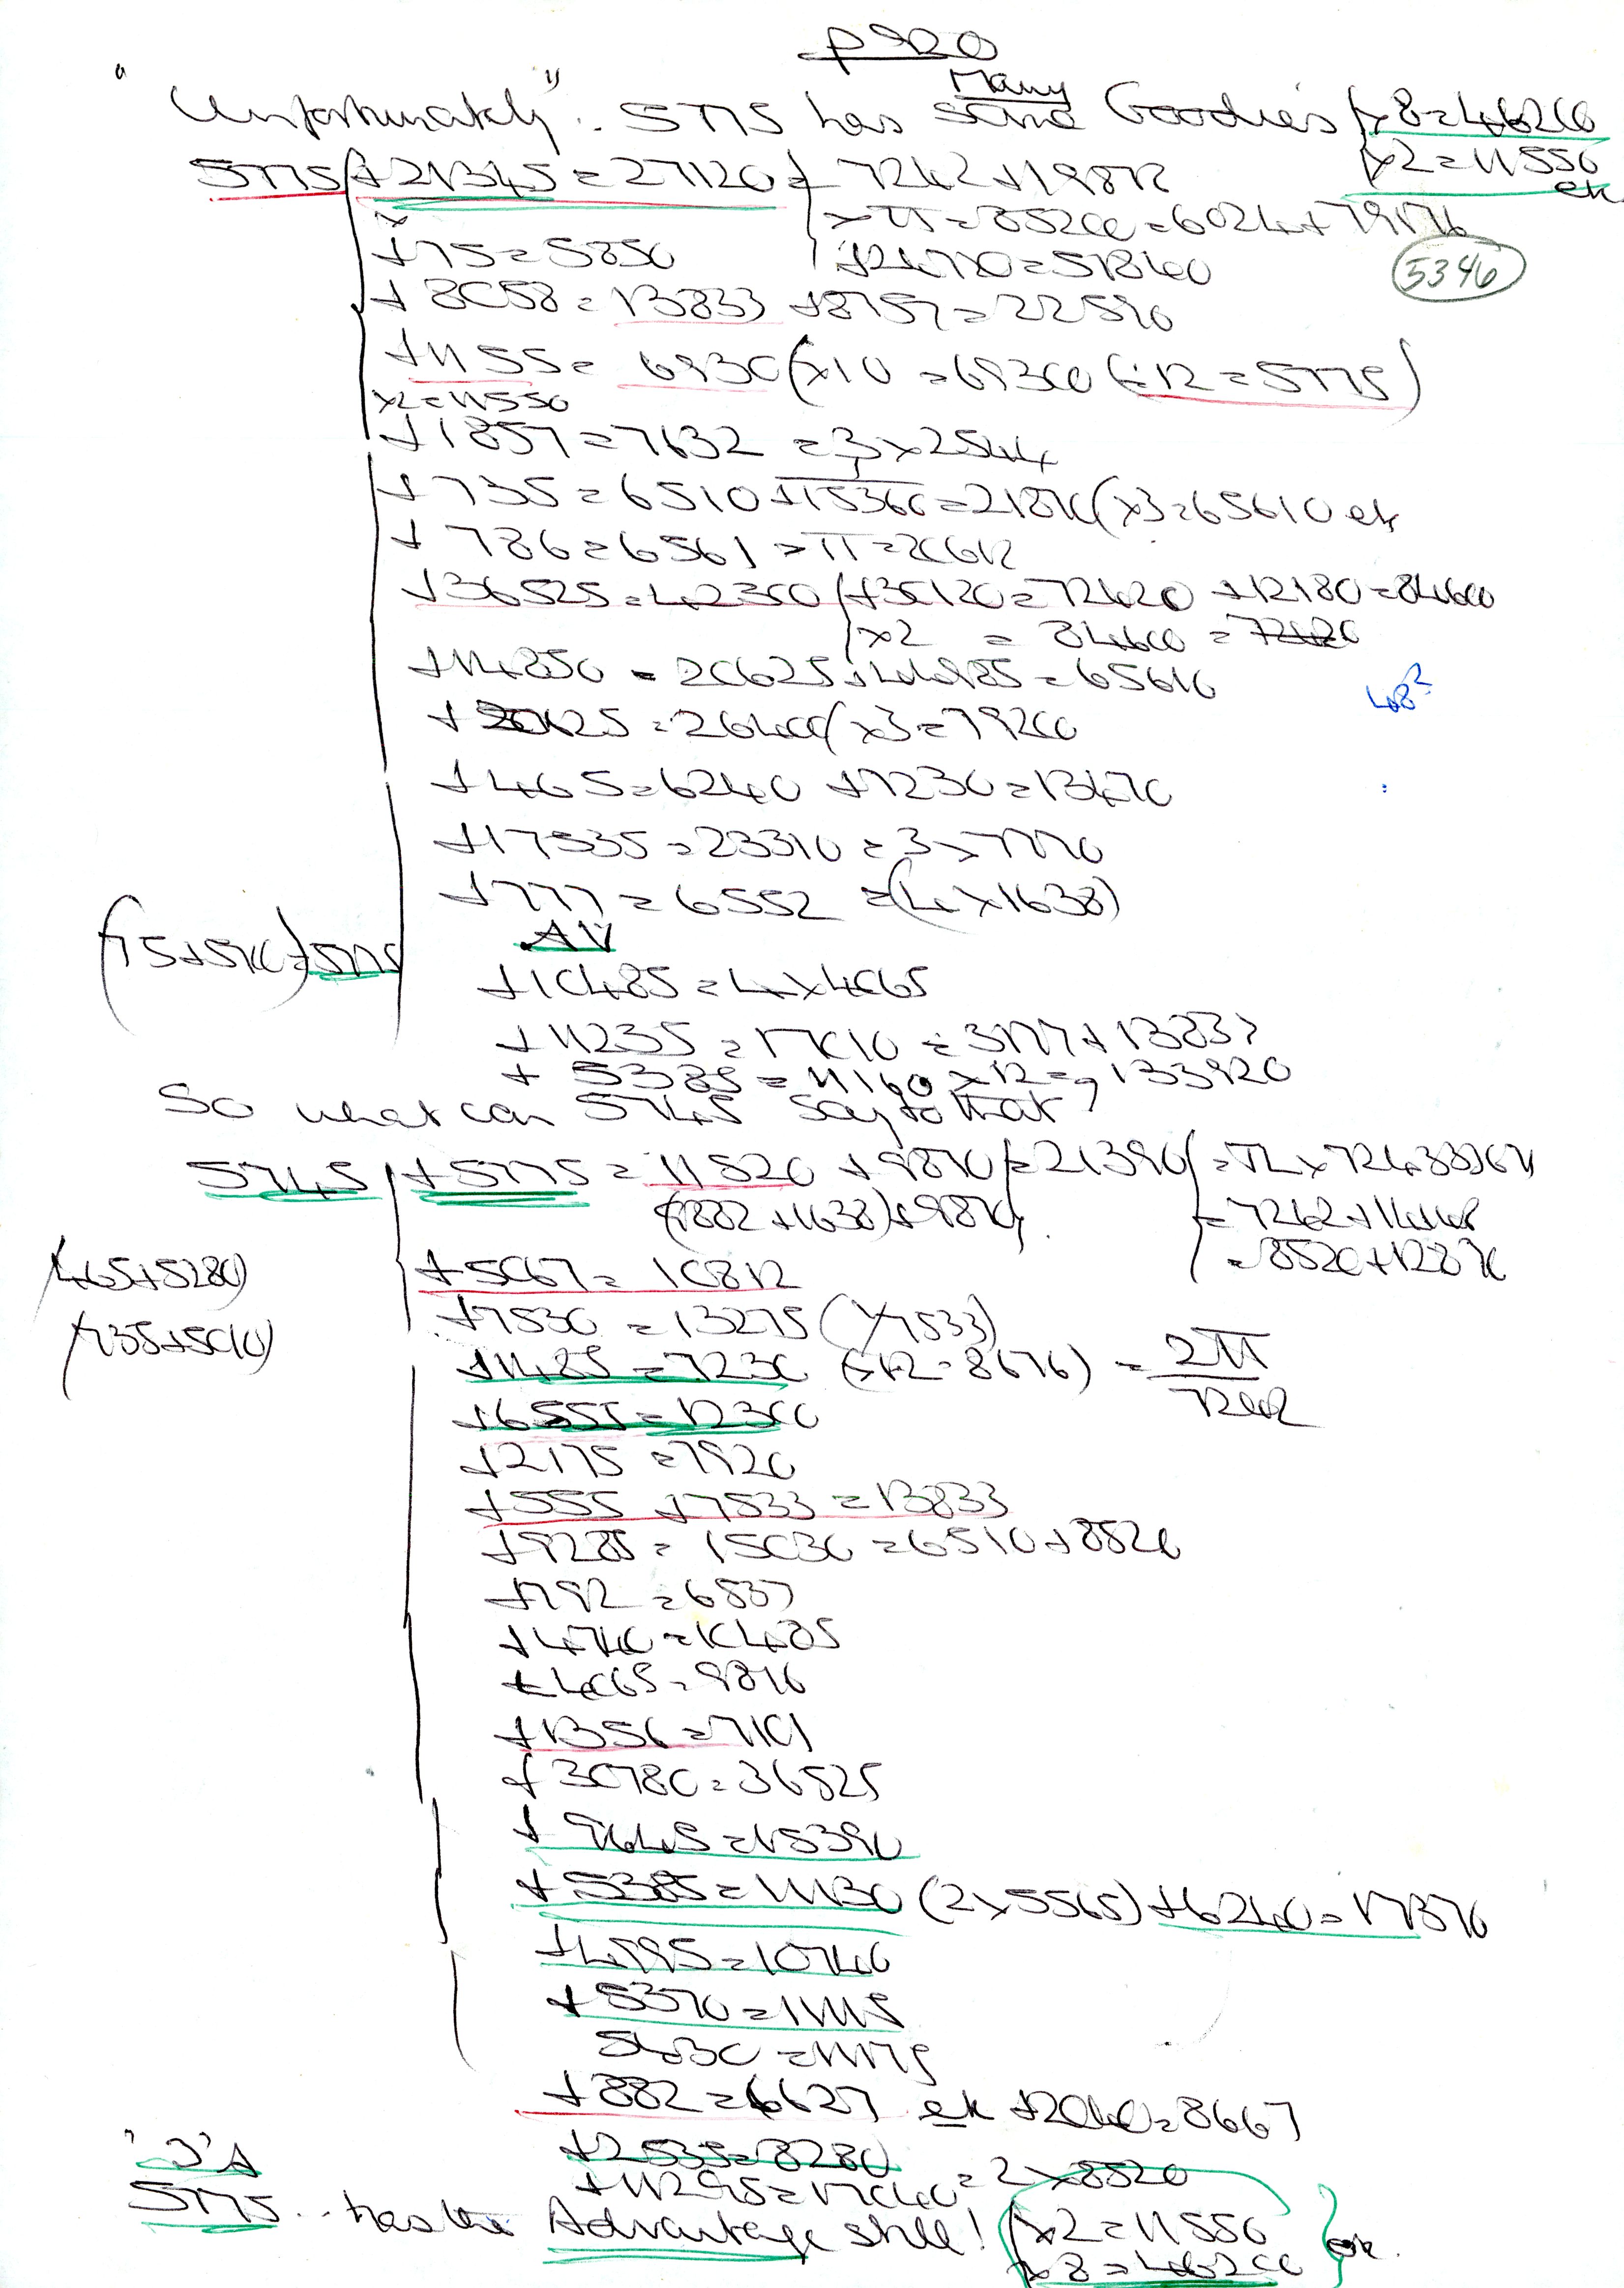 p920
"Unfortunately". 5775 has some Many Goodies (x8=46200
(x2=11550 etc
5775 (+21345=27120 = 7242+19878
x
x π = 85200 = 6024+79176
+75=5850
+24720=51840
5346
+8058=13833 +8757=22590
+1155= 6930 (x10 =69300 (÷12=5775)
x2=11550
+1857=7632 =3x2544
+735=6510+15360=21870 (x3=65610 etc
+786=6561 ÷π=20612
+36525=42300 (+30120=72420 +12180=84600
x2 = 84600 =
+14850 = 20625+44985=65610
48²
+20625=26400 (x3=79200
+465=6240 +7230=13470
+17535=23310=3x7770
+777=6552 =(4x1638)
AV
(75+5700)=5775
+10485=4x4065
+11235=17010 =3177+13833
+5385=11160 x12= 133920
So what can 5745 say to that?
5745 (+5775=11520 +9870 (=21390
(9882+1638)+9870
=7242+14148
=8520+12870
(465+5280)
+5067=10812
(735+5010)
+7530=13275 (7533)
+1485=7230 (x12=8676) = 2π
+6555=12300
+2175=7920
+555 +7533=13833
+9285=15030=6510+8520
+792=6537
+4740=10485
+4065=9810
+1356=7101
+30780=36525
+9645=15390
+5385=11130 (2x5565)+6240=17370
+4995=10740
+5370=11115
5430=11175
+882=6627 etc +2040=8667
+2535=8280
'3'A
+11295=17040=2x8520
5775.. has the Advantage still! (x2=11550
x8=46200